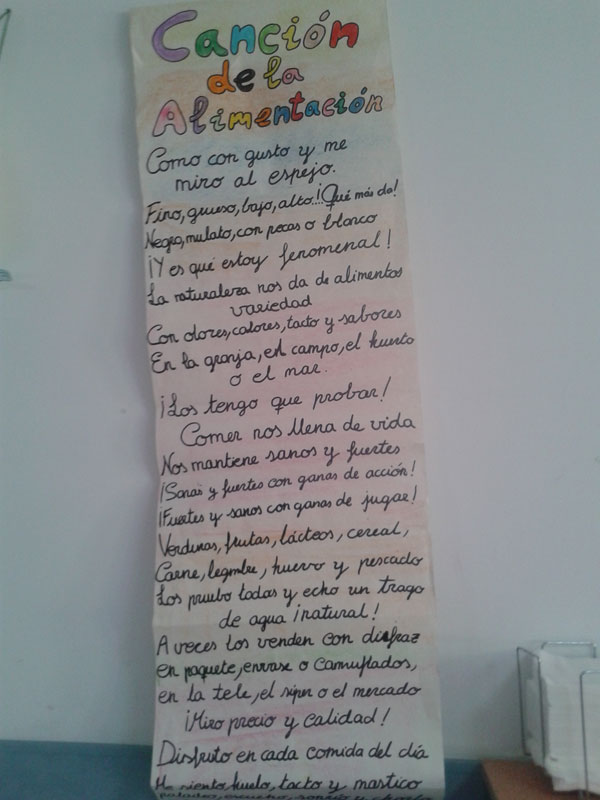 Canción
de la
Alimentación
Como con gusto y me
miro al espejo.
Fino, grueso, bajo, alto..!Qué más da!
Negro, mulato, con pecas o blanco
¡Y es que estoy fenomenal!
La naturaleza nos da de alimentos
variedad
Con olores, calores, tacto y sabores
En la granja, en campo, el huerto
o el mar.
¡Los tengo que probar!
Comer nos llena de vida
Nos mantiene sanos y fuertes
¡Sanos y fuertes con ganas de acción!
¡Fuertes y sanos con ganas de jugar!
Verduras, frutas, lácteos, cereal,
Carne, legumbre, huevo y pescado
Los pruebo todos y echo un trago
de agua ¡natural!
A veces los venden con disfraz
en paquete, envase o camuflados,
en la tele, el súper o el mercado
¡Miro precio y calidad!
Disfruto en cada comida del día
Me siento, huelo, tacto y mastico
paladeo, escucho, sonrío y